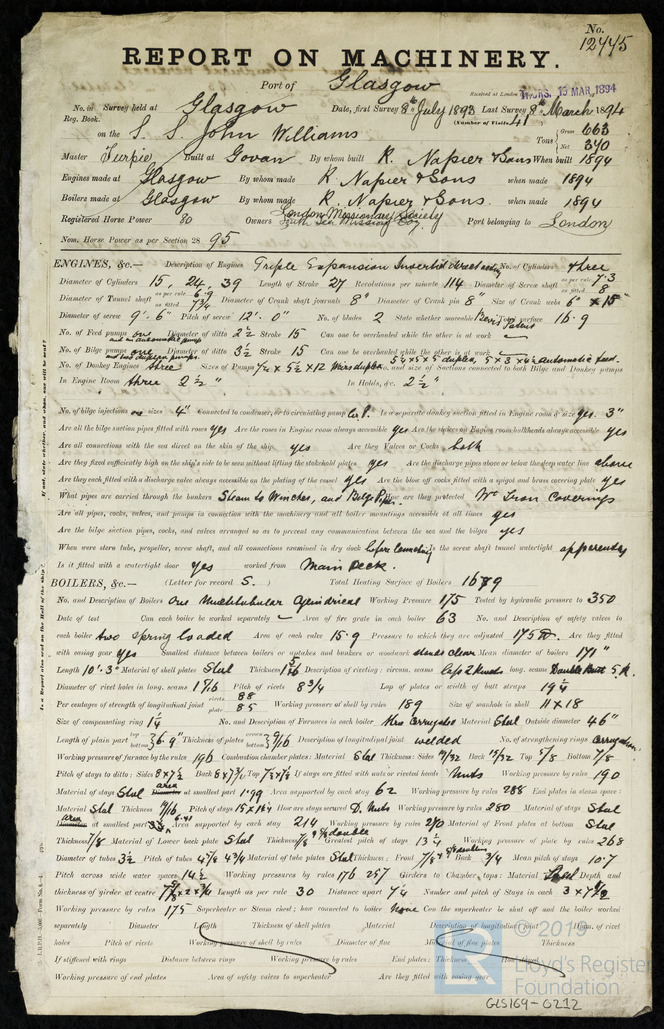 No. 12445
REPORT ON MACHINERY.
Port of Glasgow
Received at London THURS. 15 MAR, 1894
No. in Survey held at Glasgow Date, first Survey 8th July 1893 Last Survey 8th March 1894
Reg. Book. (Number of Visits 41)
on the S. S. John Williams Tons Gross 663 Net 390
Master Turpie Built at Govan By whom built R. Napier & Sons When built 1894
Engines made at Glasgow By whom made R. Napier & Sons when made 1894
Boilers made at Glasgow By whom made R. Napier & Sons when made 1894
Registered Horse Power 80 Owners London Missionary Society Port belonging to London
Nom. Horse Power as per Section 28 95
ENGINES, &c.— Description of Engines Triple Expansion Inverted direct acting No. of Cylinders three
Diameter of Cylinders 15, 24, 39 Length of Stroke 27 Revolutions per minute 114 Diameter of Screw shaft as per rule 7.3 as fitted 8
Diameter of Tunnel shaft as per rule 6.9 as fitted 7¾ Diameter of Crank shaft journals 8" Diameter of Crank pin 8" Size of Crank webs 6" x 15"
Diameter of screw 9'.6" Pitch of screw 12'.0" No. of blades 2 State whether moveable Bevis Patent Total surface 16.9
No. of Feed pumps one Diameter of ditto 2½ Stroke 15 Can one be overhauled while the other is at work
and an automatic pump
No. of Bilge pumps one Diameter of ditto 3½ Stroke 15 Can one be overhauled while the other is at work
No. of Donkey Engines three Sizes of Pumps and size of Suctions connected to both Bilge and Donkey pumps
In Engine Room three 2½" In Holds, &c. 2½"
No. of bilge injections one sizes 4" Connected to condenser, or to circulating pump C.P. Is a separate donkey suction fitted in Engine room & size yes. 3"
Are all the bilge suction pipes fitted with roses yes Are the roses in Engine room always accessible yes Are the sluices on Engine room bulkheads always accessible yes
Are all connections with the sea direct on the skin of the ship yes Are they Valves or Cocks both
Are they fixed sufficiently high on the ship's side to be seen without lifting the stokehold plates yes Are the discharge pipes above or below the deep water line above
Are they each fitted with a discharge valve always accessible on the plating of the vessel yes Are the blow off cocks fitted with a spigot and brass covering plate yes
What pipes are carried through the bunkers Steam to Winches, and Bilge Pipes. How are they protected Wt Iron Coverings
Are all pipes, cocks, valves, and pumps in connection with the machinery and all boiler mountings accessible at all times yes
Are the bilge suction pipes, cocks, and valves arranged so as to prevent any communication between the sea and the bilges yes
When were stern tube, propeller, screw shaft, and all connections examined in dry dock before launching Is the screw shaft tunnel watertight apparently
Is it fitted with a watertight door yes worked from Main Deck.
BOILERS, &c.— (Letter for record S.) Total Heating Surface of Boilers 1689
No. and Description of Boilers One Multitubular Cylindrical Working Pressure 175 Tested by hydraulic pressure to 350
Date of test Can each boiler be worked separately Area of fire grate in each boiler 63 No. and Description of safety valves to
each boiler two spring loaded Area of each valve 15.9 Pressure to which they are adjusted 175 lb. Are they fitted
with easing gear yes Smallest distance between boilers or uptakes and bunkers or woodwork stands clear Mean diameter of boilers 171"
Length 10'.3" Material of shell plates Steel Thickness 1 5/16 Description of riveting: circum. seams Laps 2 Riveted long. seams Double Butt 5 R.
Diameter of rivet holes in long. seams 1 7/16 Pitch of rivets 8¾ Lap of plates or width of butt straps 19¼
Per centages of strength of longitudinal joint rivets 88 plate 85 Working pressure of shell by rules 189 Size of manhole in shell 11 x 18
Size of compensating ring 1¼ No. and Description of Furnaces in each boiler three Corrugated Material Steel Outside diameter 46"
Length of plain part top bottom 6.9" Thickness of plates crown bottom 9/16 Description of longitudinal joint welded No. of strengthening rings Corrugation.
Working pressure of furnace by the rules 196 Combustion chamber plates: Material Steel Thickness: Sides 19/32 Back 19/32 Top 5/8 Bottom 7/8
Pitch of stays to ditto: Sides 8 x 7½ Back 8 x 7¾ Top 7⅞ x 7¼ If stays are fitted with nuts or riveted heads Nuts Working pressure by rules 190
Material of stays Steel area at smallest part 1.99 Area supported by each stay 62 Working pressure by rules 288 End plates in steam space:
Material Steel Thickness 11/16 Pitch of stays 15 x 16¼ How are stays secured D. Nuts Working pressure by rules 280 Material of stays Steel
area at smallest part 6.41 Area supported by each stay 214 Working pressure by rules 270 Material of Front plates at bottom Steel
Thickness 7/8 Material of Lower back plate Steel Thickness 7/8 & ⅝ double Greatest pitch of stays 13¼ Working pressure of plate by rules 268
Diameter of tubes 3½ Pitch of tubes 4⅞ 4¾ Material of tube plates Steel Thickness: Front 7/8 Back ¾ Mean pitch of stays 10.7
Pitch across wide water spaces 14½ Working pressures by rules 176 257 Girders to Chamber tops: Material Steel Depth and
thickness of girder at centre Length as per rule 30 Distance apart 7¼ Number and pitch of Stays in each 3 x 7½
Working pressure by rules 175 Superheater or Steam chest; how connected to boiler None Can the superheater be shut off and the boiler worked
separately Diameter Length Thickness of shell plates Material Description of longitudinal joint Diam. of rivet
holes Pitch of rivets Working pressure of shell by rules Diameter of flue Material of flue plates Thickness
If stiffened with rings Distance between rings Working pressure by rules End plates: Thickness How stayed
Working pressure of end plates Area of safety valves to superheater Are they fitted with easing gear
© 2019
LR
Lloyd's Register
Foundation
GLS169-0212